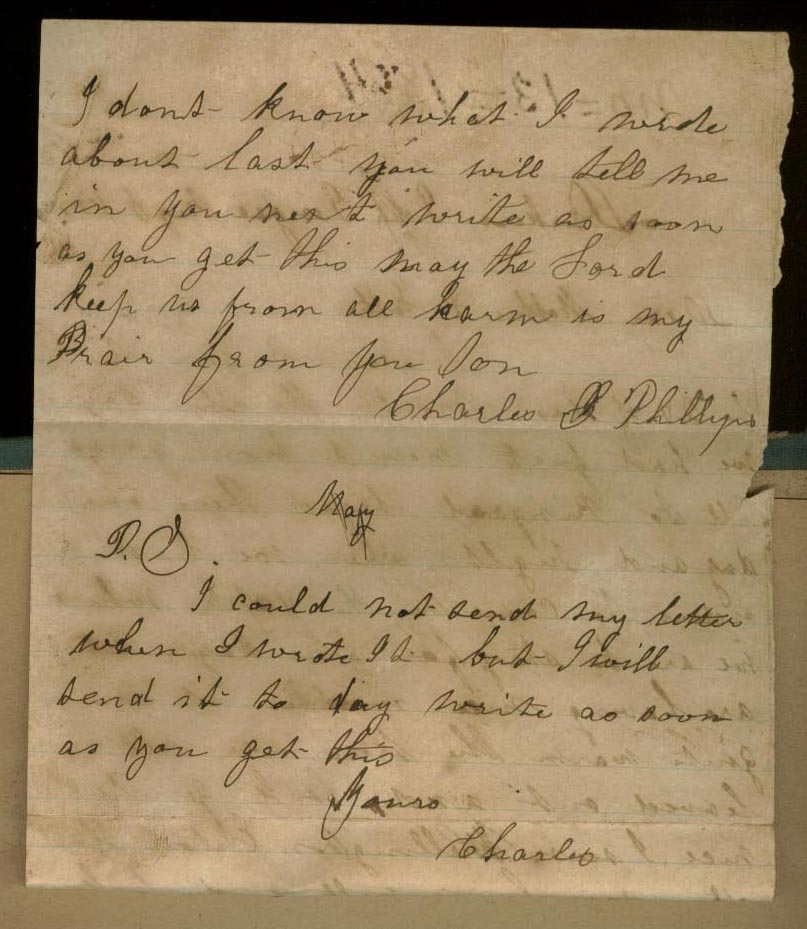 I dont know what I wrote
about last you will tell me
in you next write as soon
as you get this may the Lord
keep us from all harm is my
Prair from you Son
Charles Phillips
May
P.S.
I could not send my letter
when I wrote It but I will
send it to day write as soon
as you get this
Yours
Charles